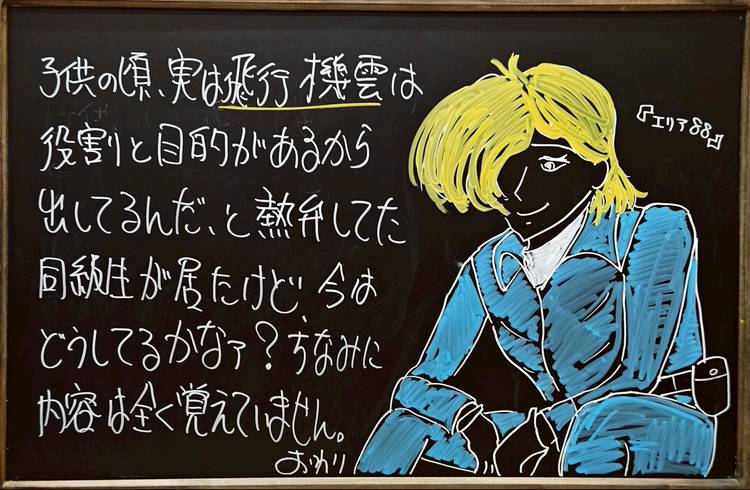 子供の頃、実は飛行機雲は
役割と目的があるから
出してるんだ、と熱弁してた
同級生が居たけど、今は
どうしてるかなァ?ちなみに
内容は全く覚えていません。
おわり
『エリア88』